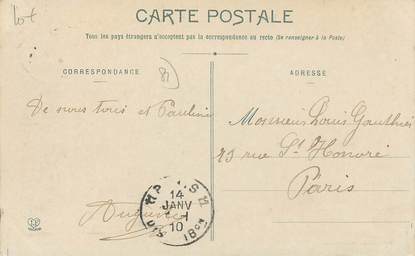 lot
CARTE POSTALE
Tous les pays étrangers n'acceptent pas la correspondance au recto (Se renseigner à la Poste)
CORRESPONDANCE
ADRESSE
De nous tous et Pauline
Monsieur Louis Gauthier
rue St Honoré
Paris
14
JANV
10